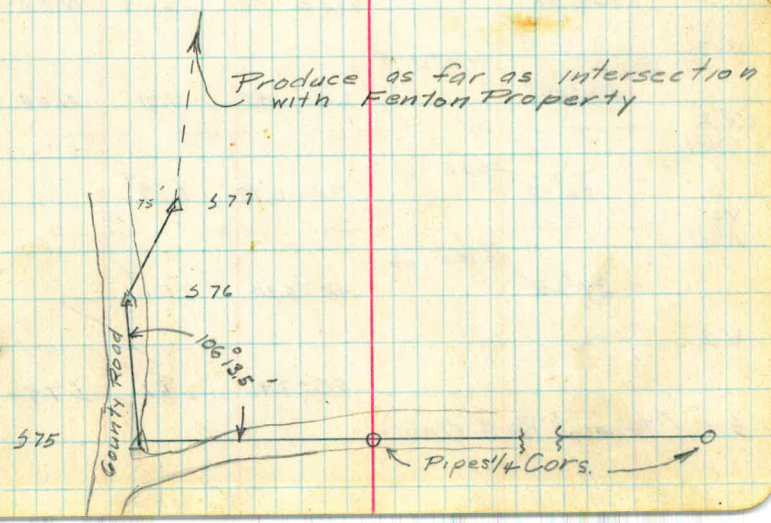 Produce as far as intersection
with Fenton Property
75'
S77
S76
106° 13.5'
County Road
S75
Pipes 1/4 Cors.